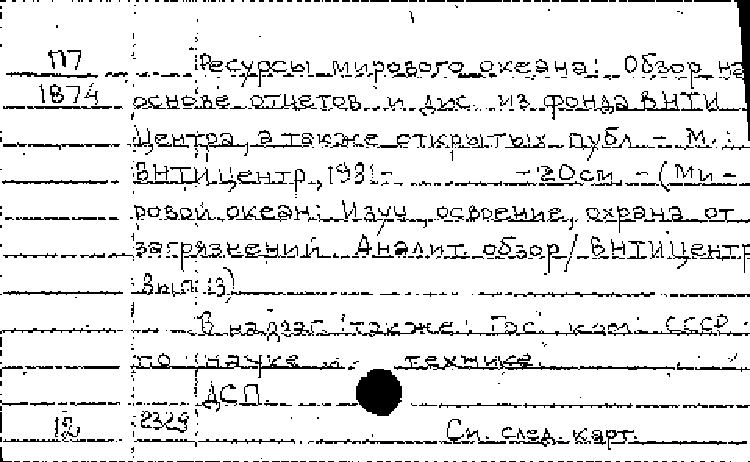 П7 Ресурсы мирового океана: Обзор на
1874 основе отчетов и дис. из фонда ВНТИ
Центра, а также открытых публ. - М.:
ВНТИЦентр, 1981- - 20см. - (Ми-
ровой океан: Изуч., освоение, охрана от
загрязнений. Аналит. обзор/ВНТИЦентр
Вып. 13)
В надзаг. также: Гос. ком. СССР
по науке и технике.
ДСП.
12 2329 См. след. карт.